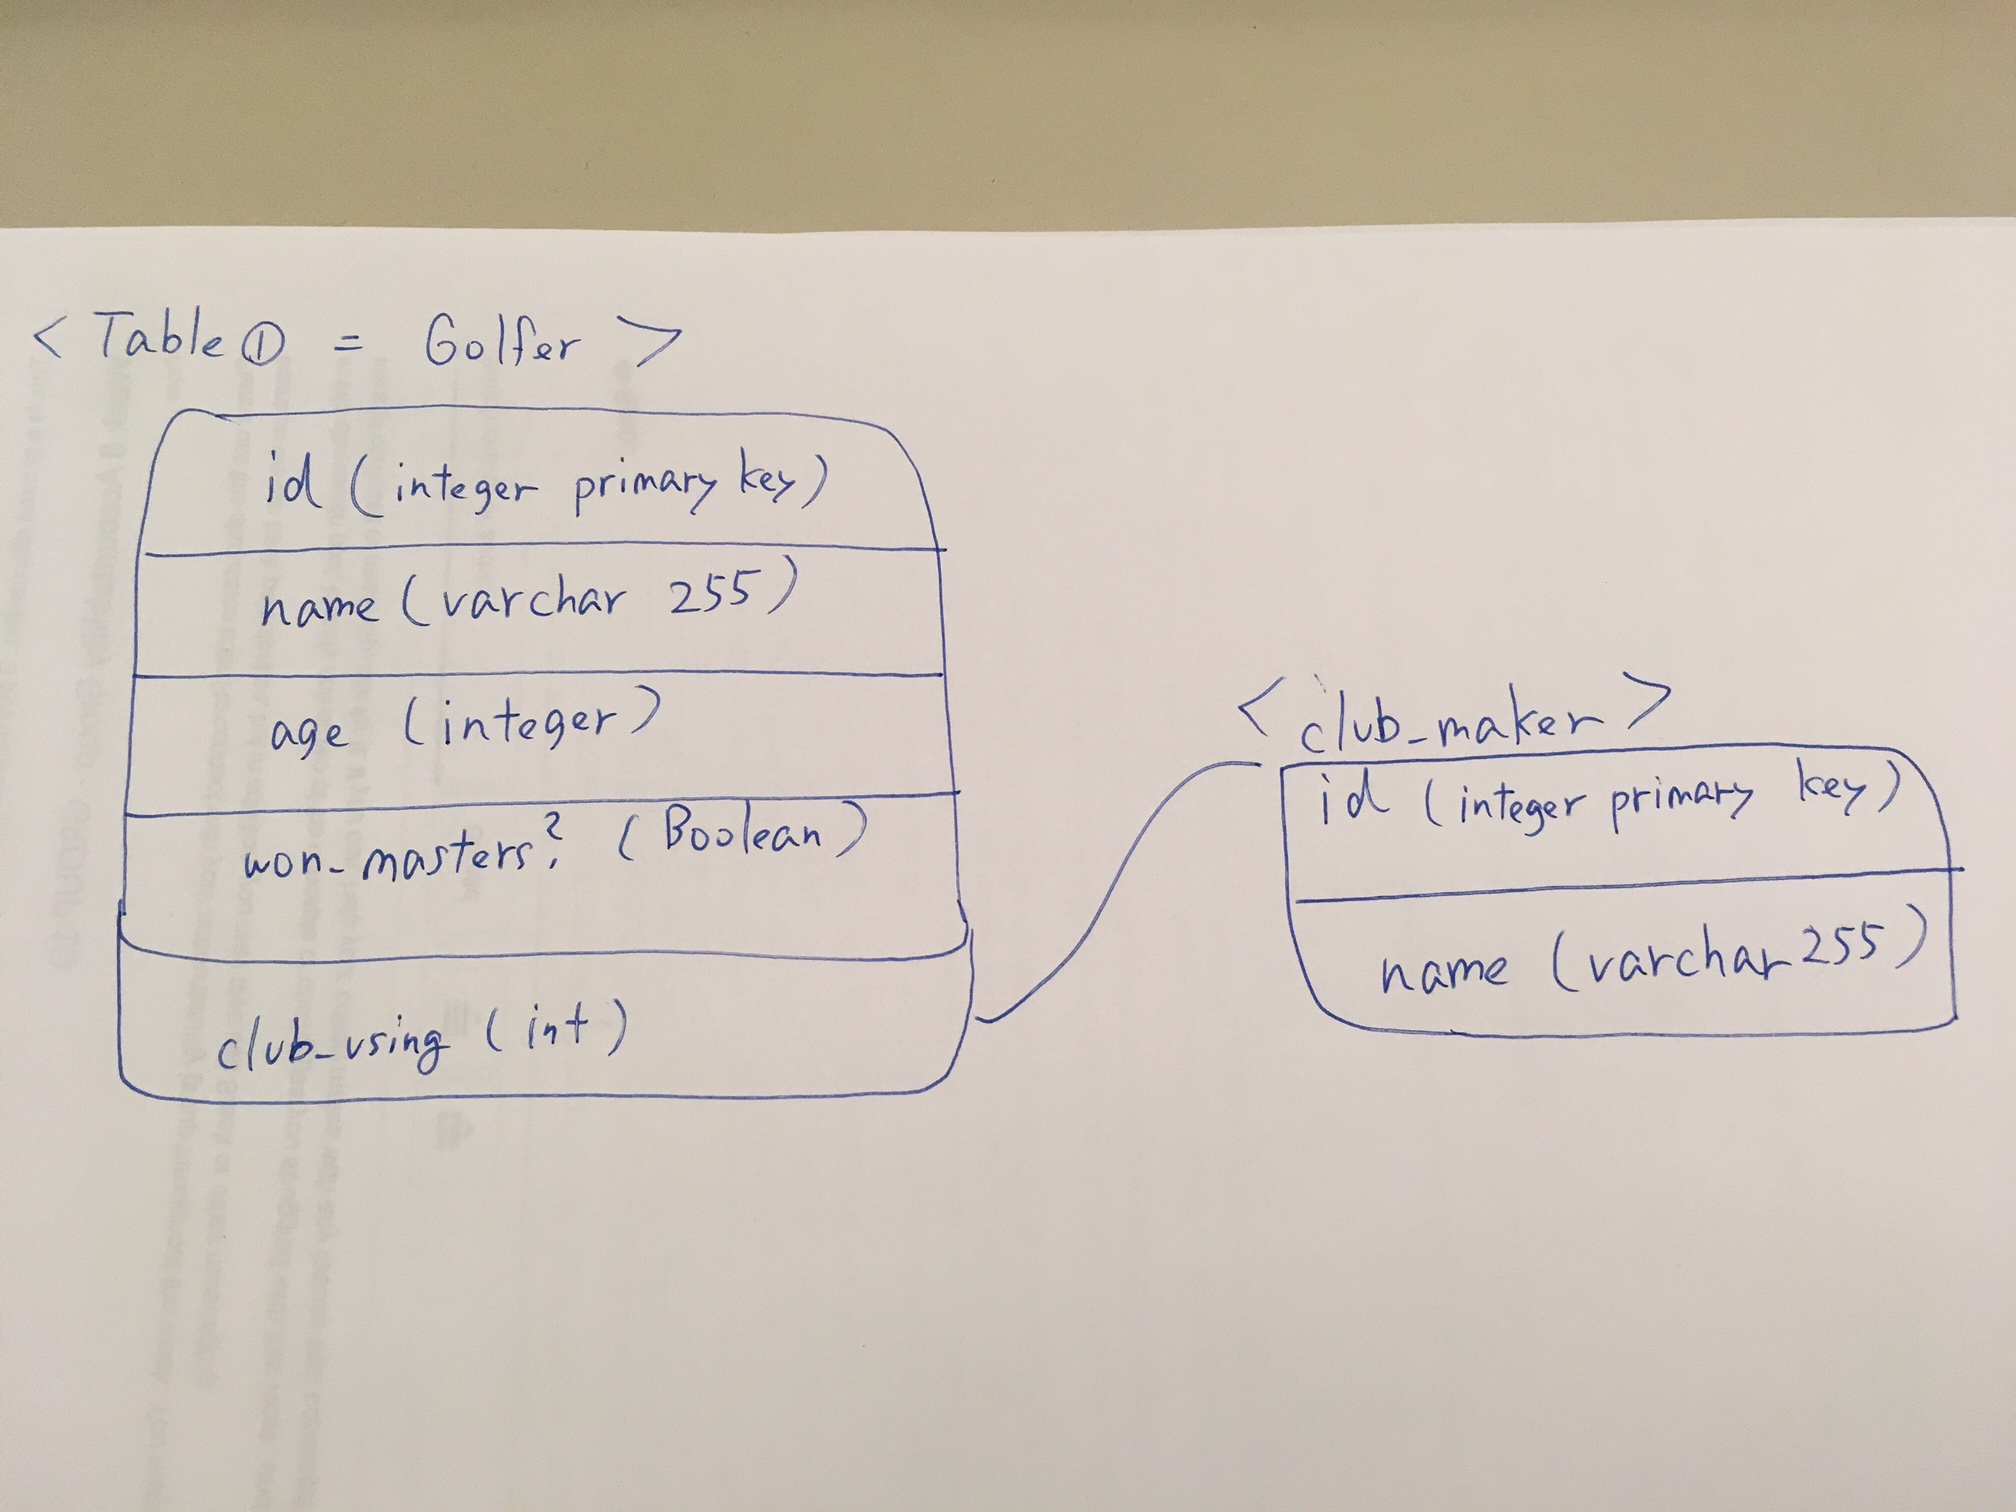 < Table ① = Golfer >
id (integer primary key)
name (varchar 255)
age (integer)
won_masters? (Boolean)
club_using (int)
< club_maker >
id (integer primary key)
name (varchar 255)